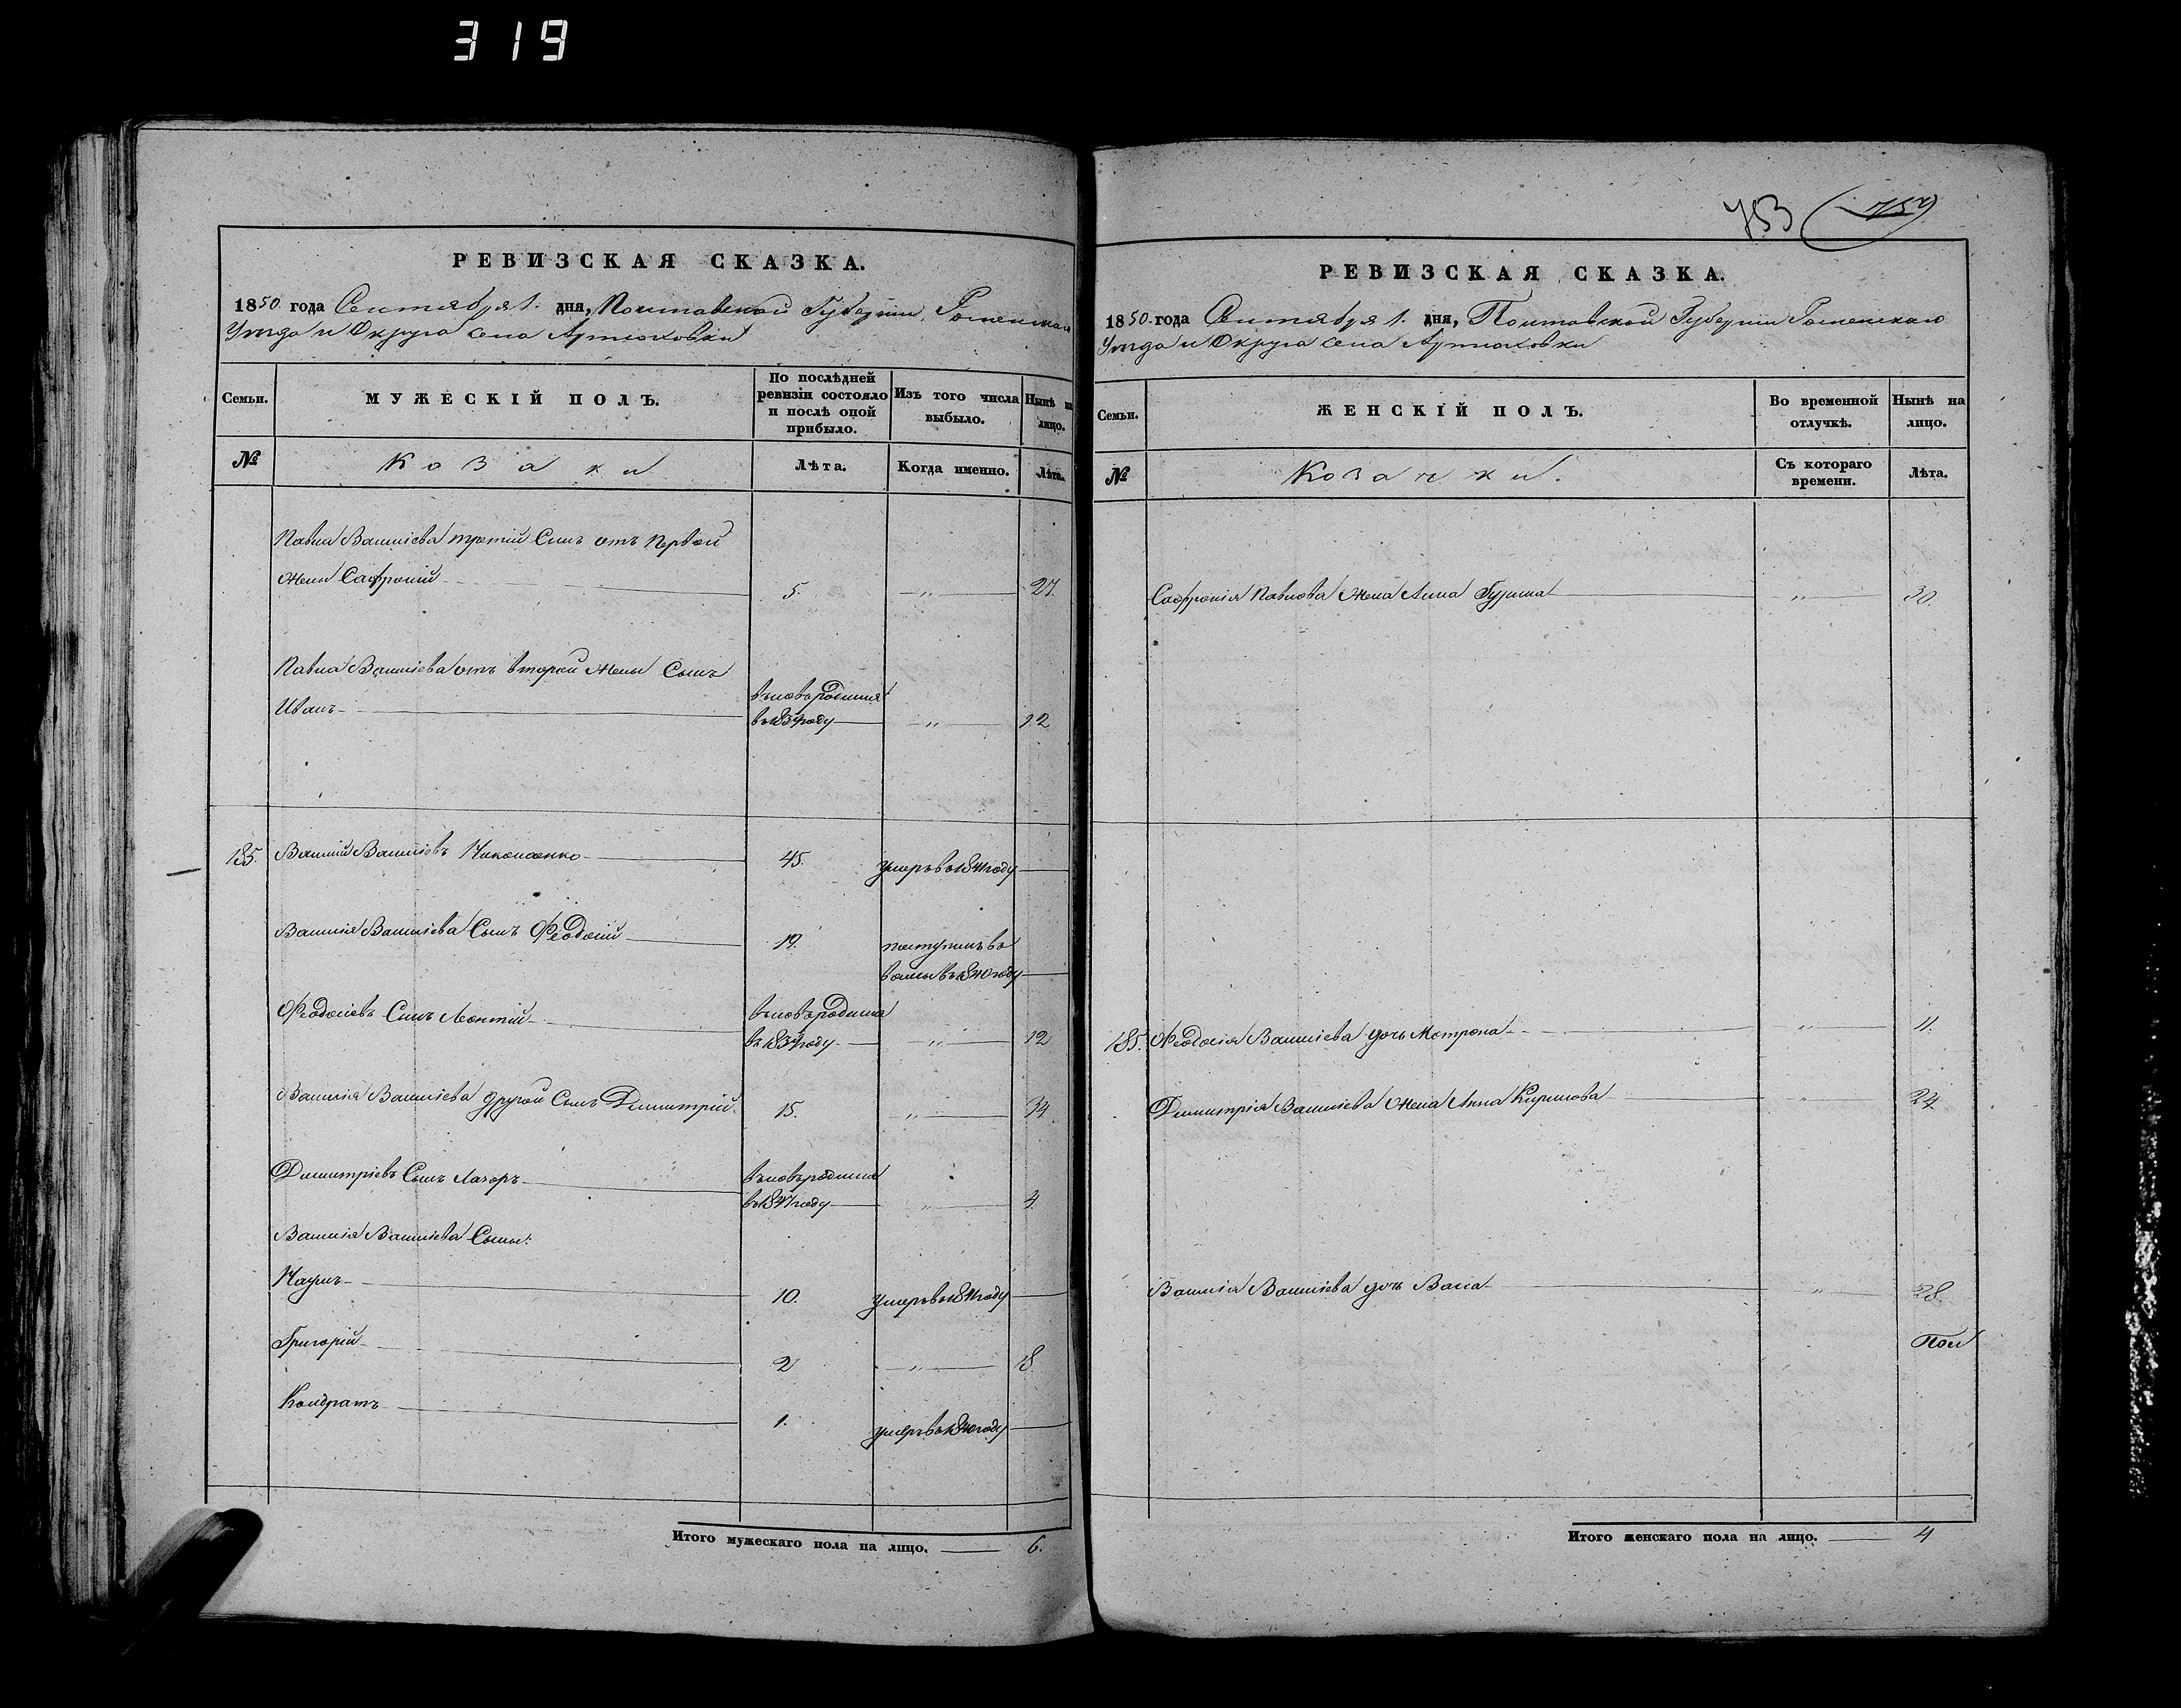 319
753 (759)
РЕВИЗСКАЯ СКАЗКА.
1850 года Сентября 1. дня, Полтавской Губерніи, Роменскаго
Уѣзда и Округа села Артюховки
Семьи.
МУЖЕСКІЙ ПОЛЪ.
По послѣдней ревизіи состояло и послѣ оной прибыло.
Изъ того числа выбыло.
Нынѣ на лицо.
№
Козаки
Лѣта.
Когда именно.
Лѣта.
Павла Василіева третій Сынъ отъ первой
жены Сафроній 5. — „ — 27.
Павла Василіева отъ второй жены Сынъ
Иванъ вновь родился въ 1839 году — „ — 12
185. Василій Василіевъ 45. умеръ въ 1841 году
Василія Василіева Сынъ Феодосій 19. поступилъ въ
въ 1840 году
Феодосіевъ Сынъ Леонтій вновь родился
въ 1839 году — „ — 12
Василія Василіева другой Сынъ Димитрій 15. „ —
Димитріевъ Сынъ Лазорь вновь родился
въ 1847 году — „ — 4.
Василія Василіева Сыны:
Наумъ 10. умеръ въ 1841 году
Григорій 2 — „ — 18.
Кондратъ 1. умеръ въ 1840 году
Итого мужескаго пола на лицо. — 6.
РЕВИЗСКАЯ СКАЗКА.
1850. года Сентября 1. дня, Полтавской Губерніи Роменскаго
Уѣзда и Округа села Артюховки
Семьи.
ЖЕНСКІЙ ПОЛЪ.
Во временной отлучкѣ.
Нынѣ на лицо.
№
Козачки.
Съ котораго времени.
Лѣта.
Сафронія Павлова жена Анна — „ — 30.
185. Феодосія Василіева дочь Мотрона — „ — 11.
Димитрія Василіева жена Анна Кирилова — „ — 24
Василія Василіева дочь Васса — „ — 28.
Итого женскаго пола на лицо. — 4